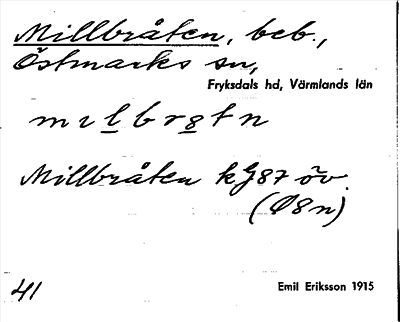 Millbråten, beb.,
Östmarks sn,
Fryksdals hd, Värmlands län
Millbråten kG87 öv.
(Ö8n)
41
Emil Eriksson 1915